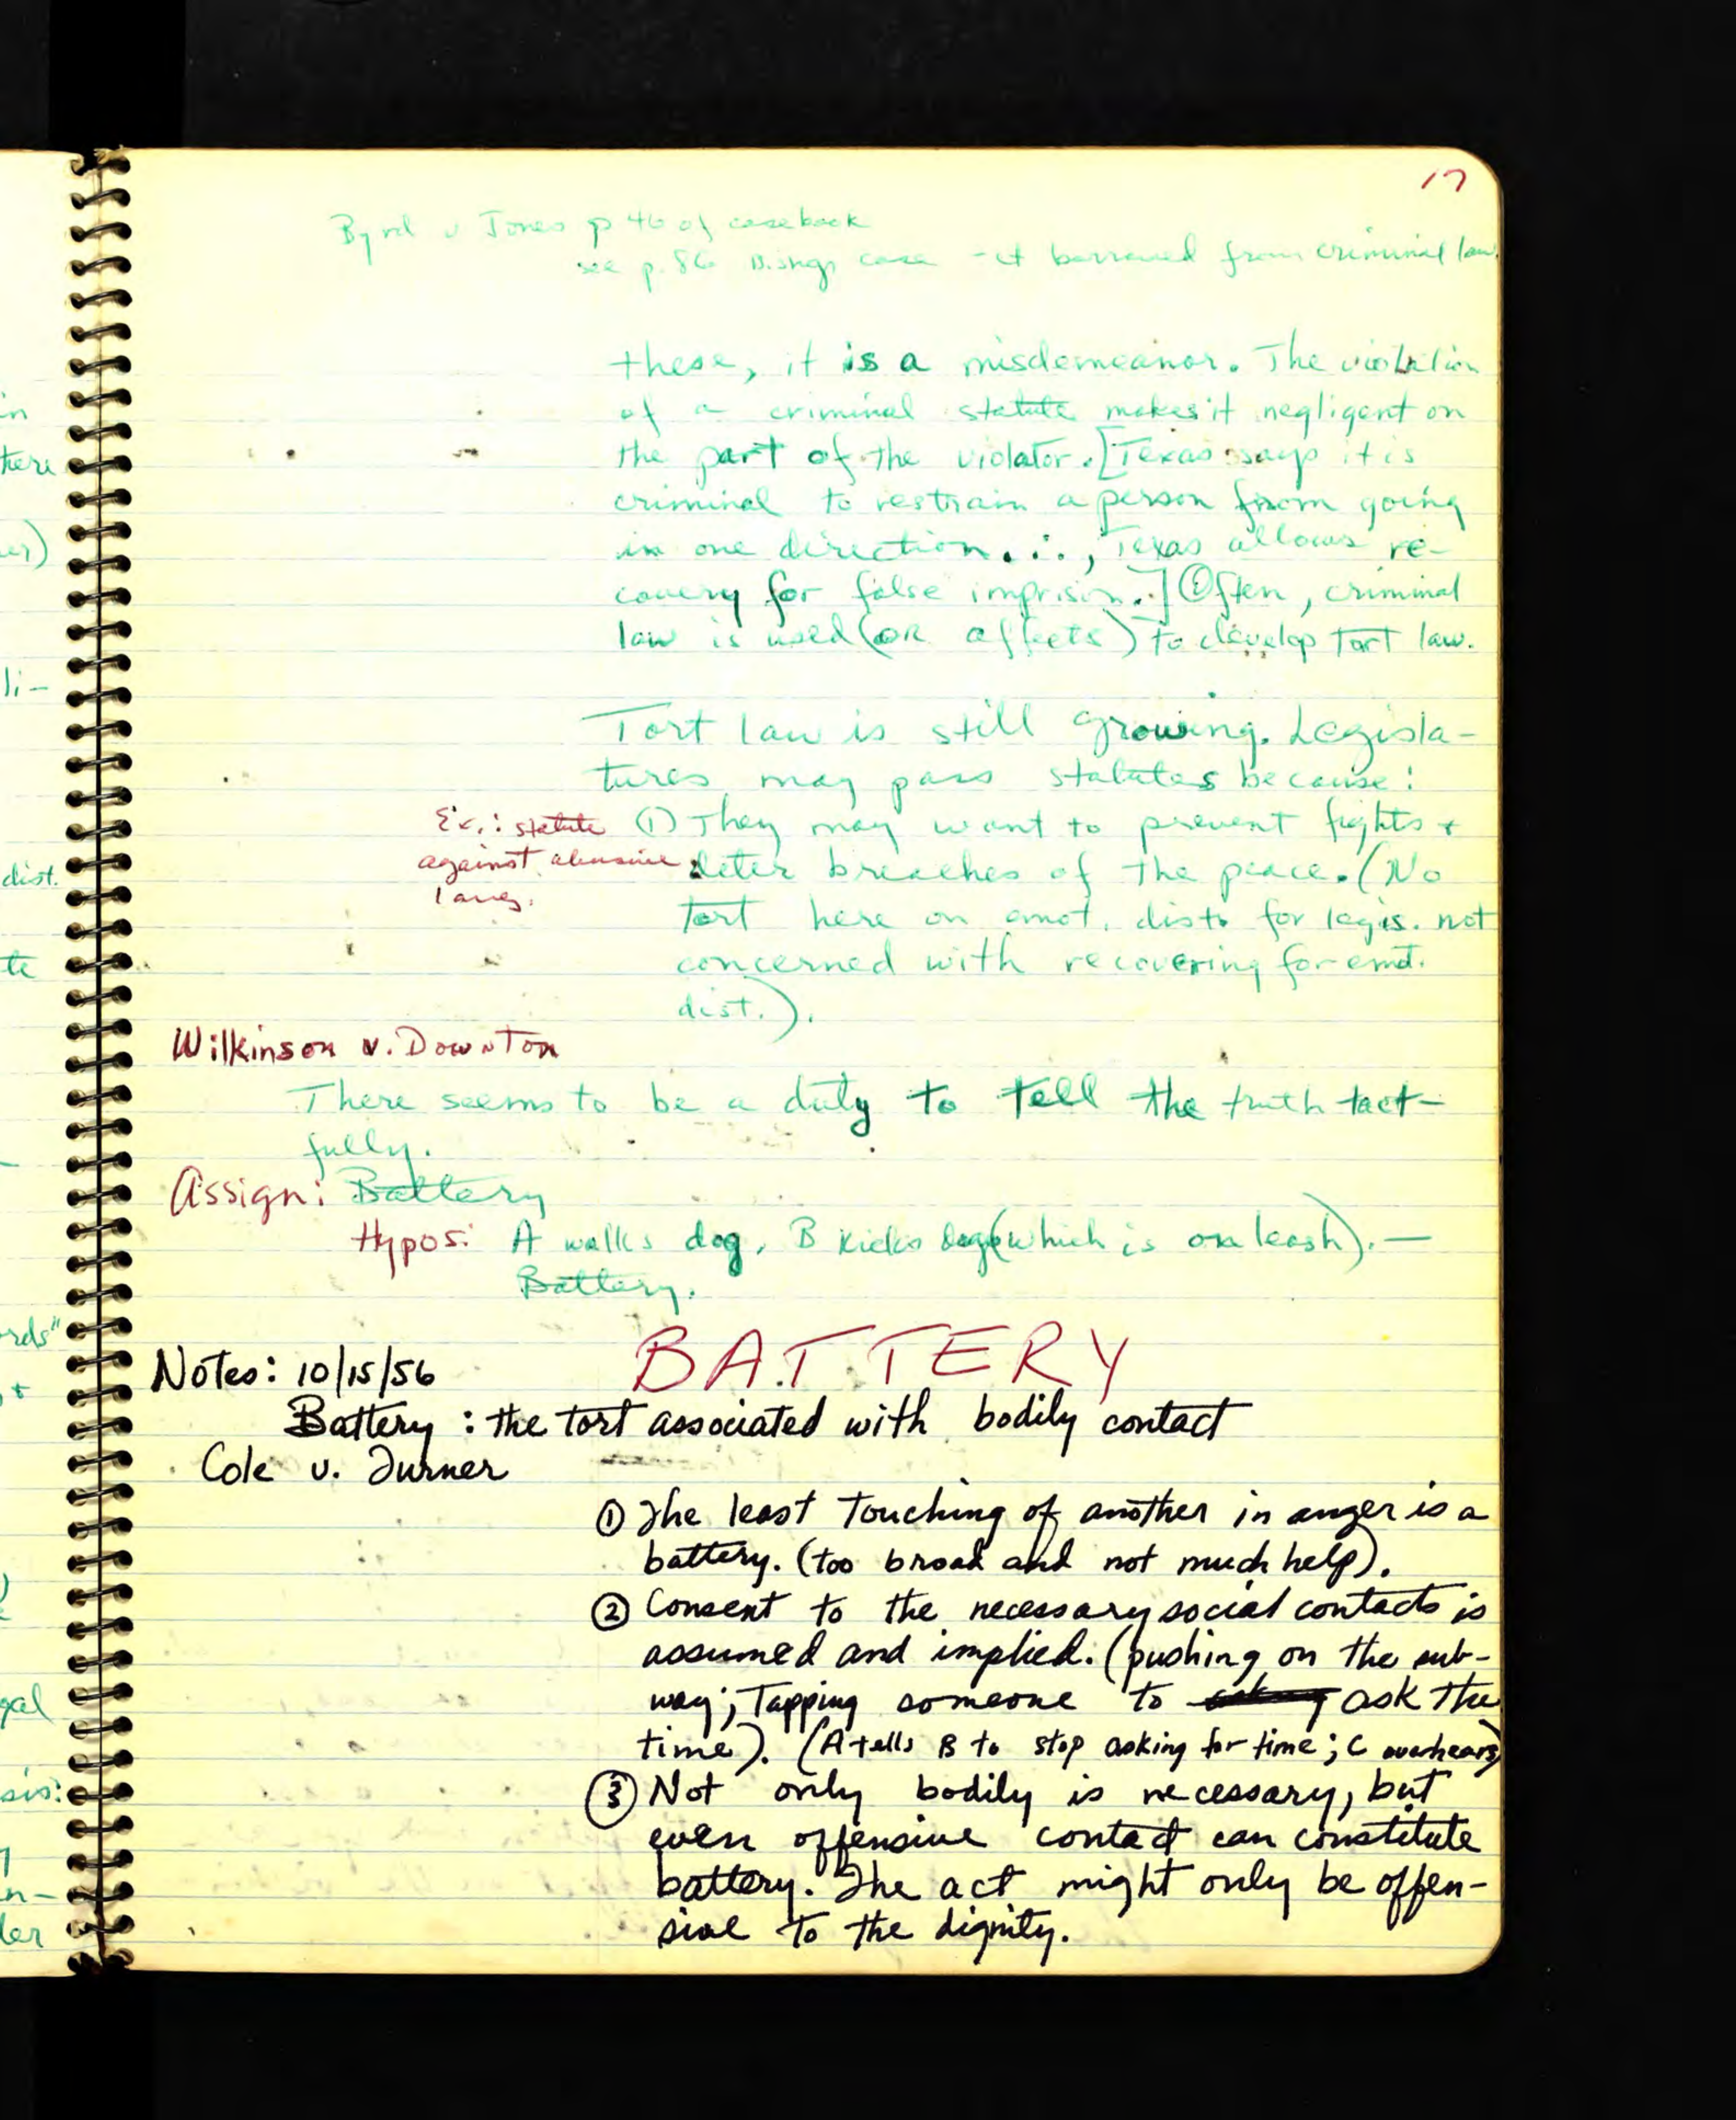 17
Byrd v Jones p 46 of casebook
see p. 86 case - ct borrowed from criminal law.
these, it is a misdemeanor. The violation
of a criminal statute makes it negligent on
the part of the violator. [Texas says it is
criminal to restrain a person from going
in one direction. ∴, Texas allows re-
covery for false imprison.] Often, criminal
law is used (OR affects) to develop tort law.
Tort law is still growing. Legisla-
tures may pass statutes because:
Ex.: statute
against abusive
lang.
(1) They may want to prevent fights +
deter breaches of the peace. (No
tort here on emot. dist. for legis. not
concerned with recovering for emot.
dist.).
Wilkinson v. Downton
There seems to be a duty to tell the truth tact-
fully.
Assign: Battery
Hypos: A walks dog, B kicks dog (which is on leash). —
Battery.
BATTERY
Notes: 10/15/56
Battery : the tort associated with bodily contact
Cole v. Turner
① The least touching of another in anger is a
battery. (too broad and not much help).
② Consent to the necessary social contacts is
assumed and implied. (pushing on the sub-
way; Tapping someone to ask the
time). (A tells B to stop asking for time; C overhears)
③ Not only bodily is necessary, but
even offensive contact can constitute
battery. The act might only be offen-
sive to the dignity.
in
here
er)
li-
dist.
te
rds"
, +
gal
sis:
n-
ler